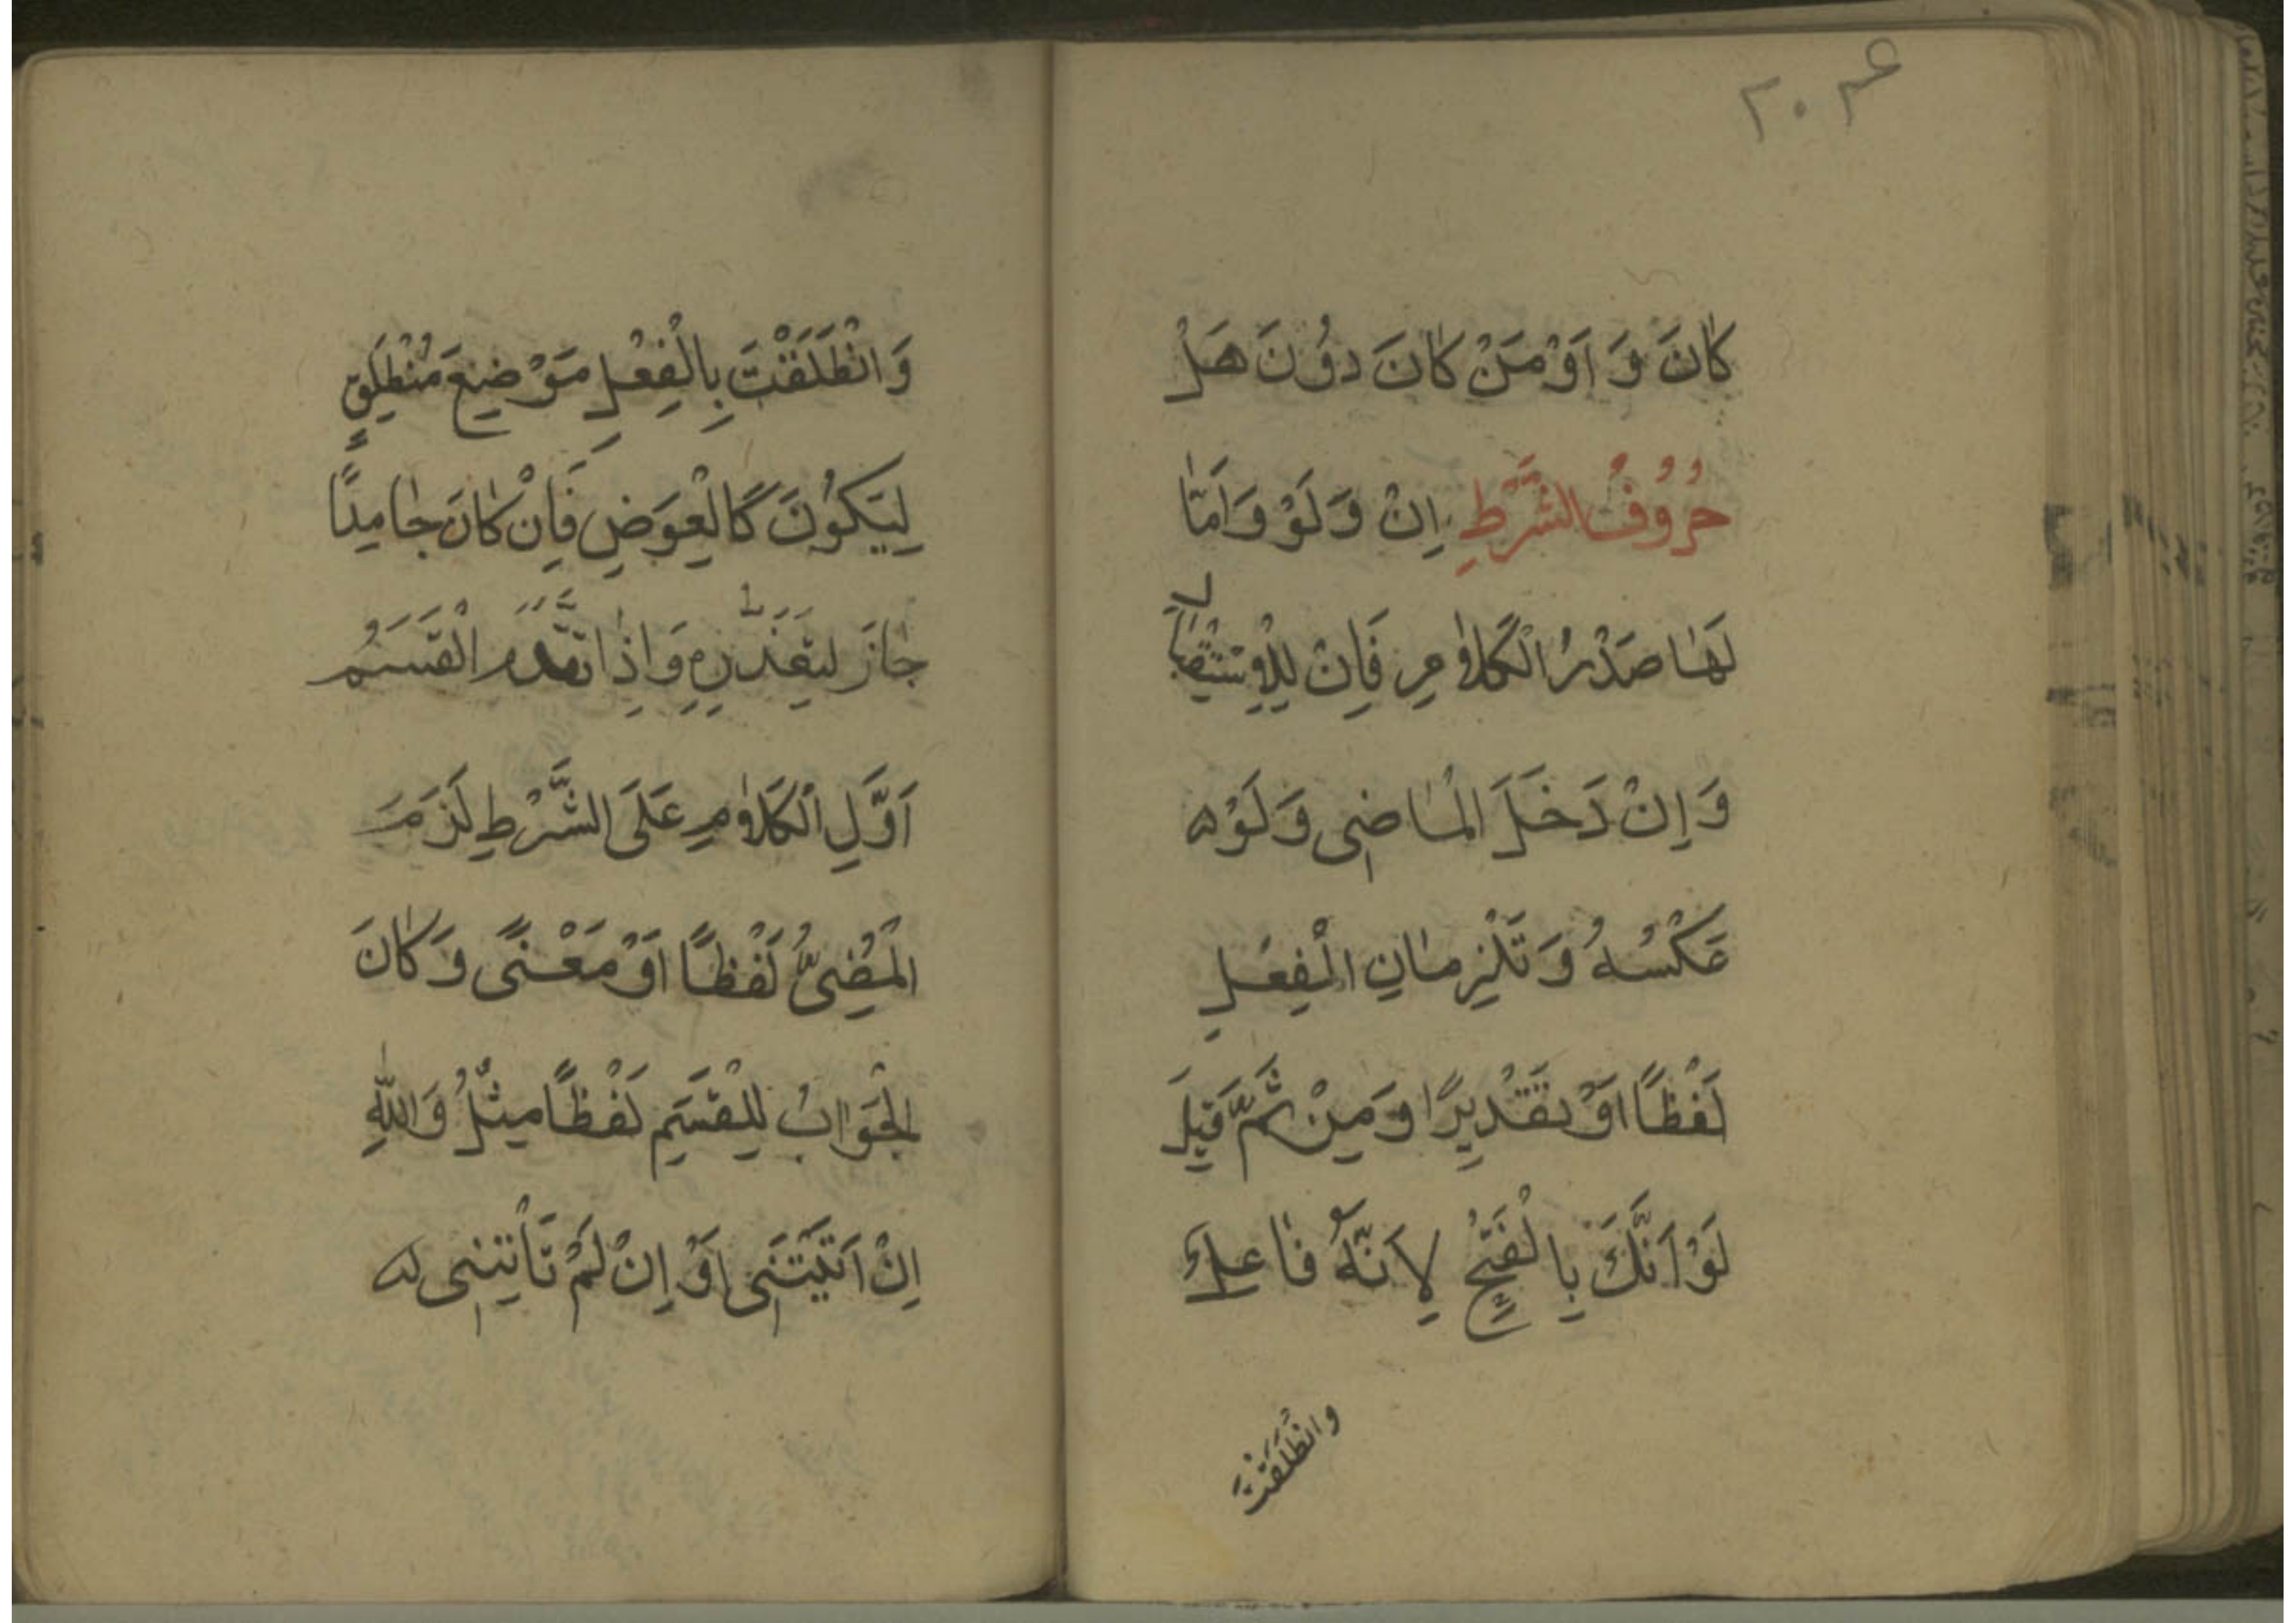 كَانَ وَ اَوَمَنْ كَانَ دُوْنَ هَلْ
حُرُوْفُ الشَّرْطِ اِنْ وَ لَوْ وَ اَمَّا
لَهَا صَدْرُ الْكَلَامِ فَاِنْ لِلْاِسْتِقْبَالِ
وَ اِنْ دَخَلَ الْمَاضِى وَ لَوْ
عَكْسُهُ وَ تَلْزِمَانِ الْفِعْلِ
لَفْظًا اَوْ تَقْدِيرًا وَ مِنْ ثَمَّ قِيلَ
لَوْ اَنَّكَ بِالْفَتْحِ لِاَنَّهُ فَاعِلٌ
وَانْطَلَقْتَ
وَ انْطَلَقْتَ بِالْفِعْلِ مَوْضِعَ مُنْطَلِقٍ
لِيَكُوْنَ كَالْعِوَضِ فَاِنْ كَانَ جَامِدًا
جَازَ لِتَعَذُّرِهِ وَ اِذَا تَقَدَّمَ الْقَسَمُ
اَوَّلِ الْكَلَامِ عَلَى الشَّرْطِ لَزَمَ
الْمُضِىُّ لَفْظًا اَوْ مَعْنًى وَ كَانَ
الْجَوَابُ لِلْقَسَمِ لَفْظًا مِثْلُ وَ اللّٰهِ
اِنْ اَتَيْتَنِى اَوْ اِنْ لَمْ تَأْتِنِى